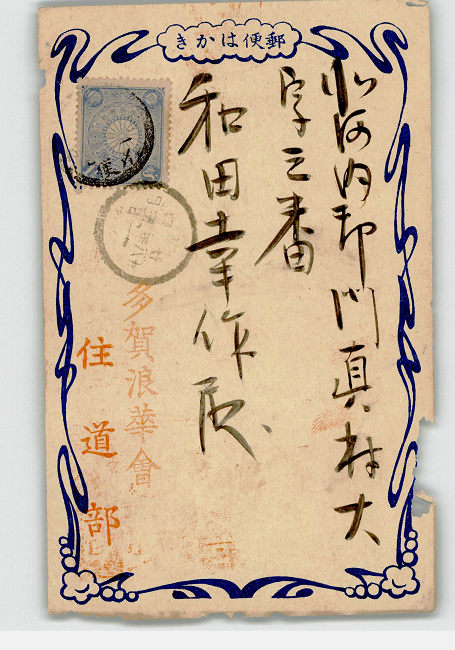 きかは便郵
北河内郡門真村大
字三番
和田幸作殿
多賀浪華會
住道部